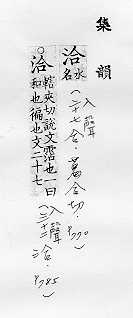 集韻
洽水名(入聲二十七合.葛合切.P770)
○洽轄夾切說文霑也一曰
和也徧也文二十七
(入聲三十二洽.P785)